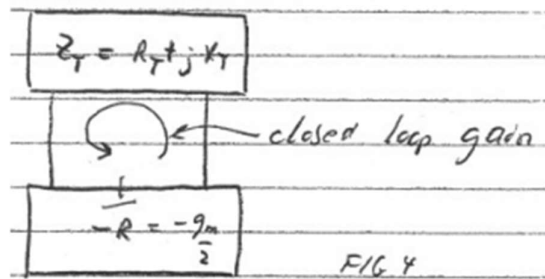 Z_T = R_T + j X_T
closed loop gain
-R = -g_m/2
FIG 4